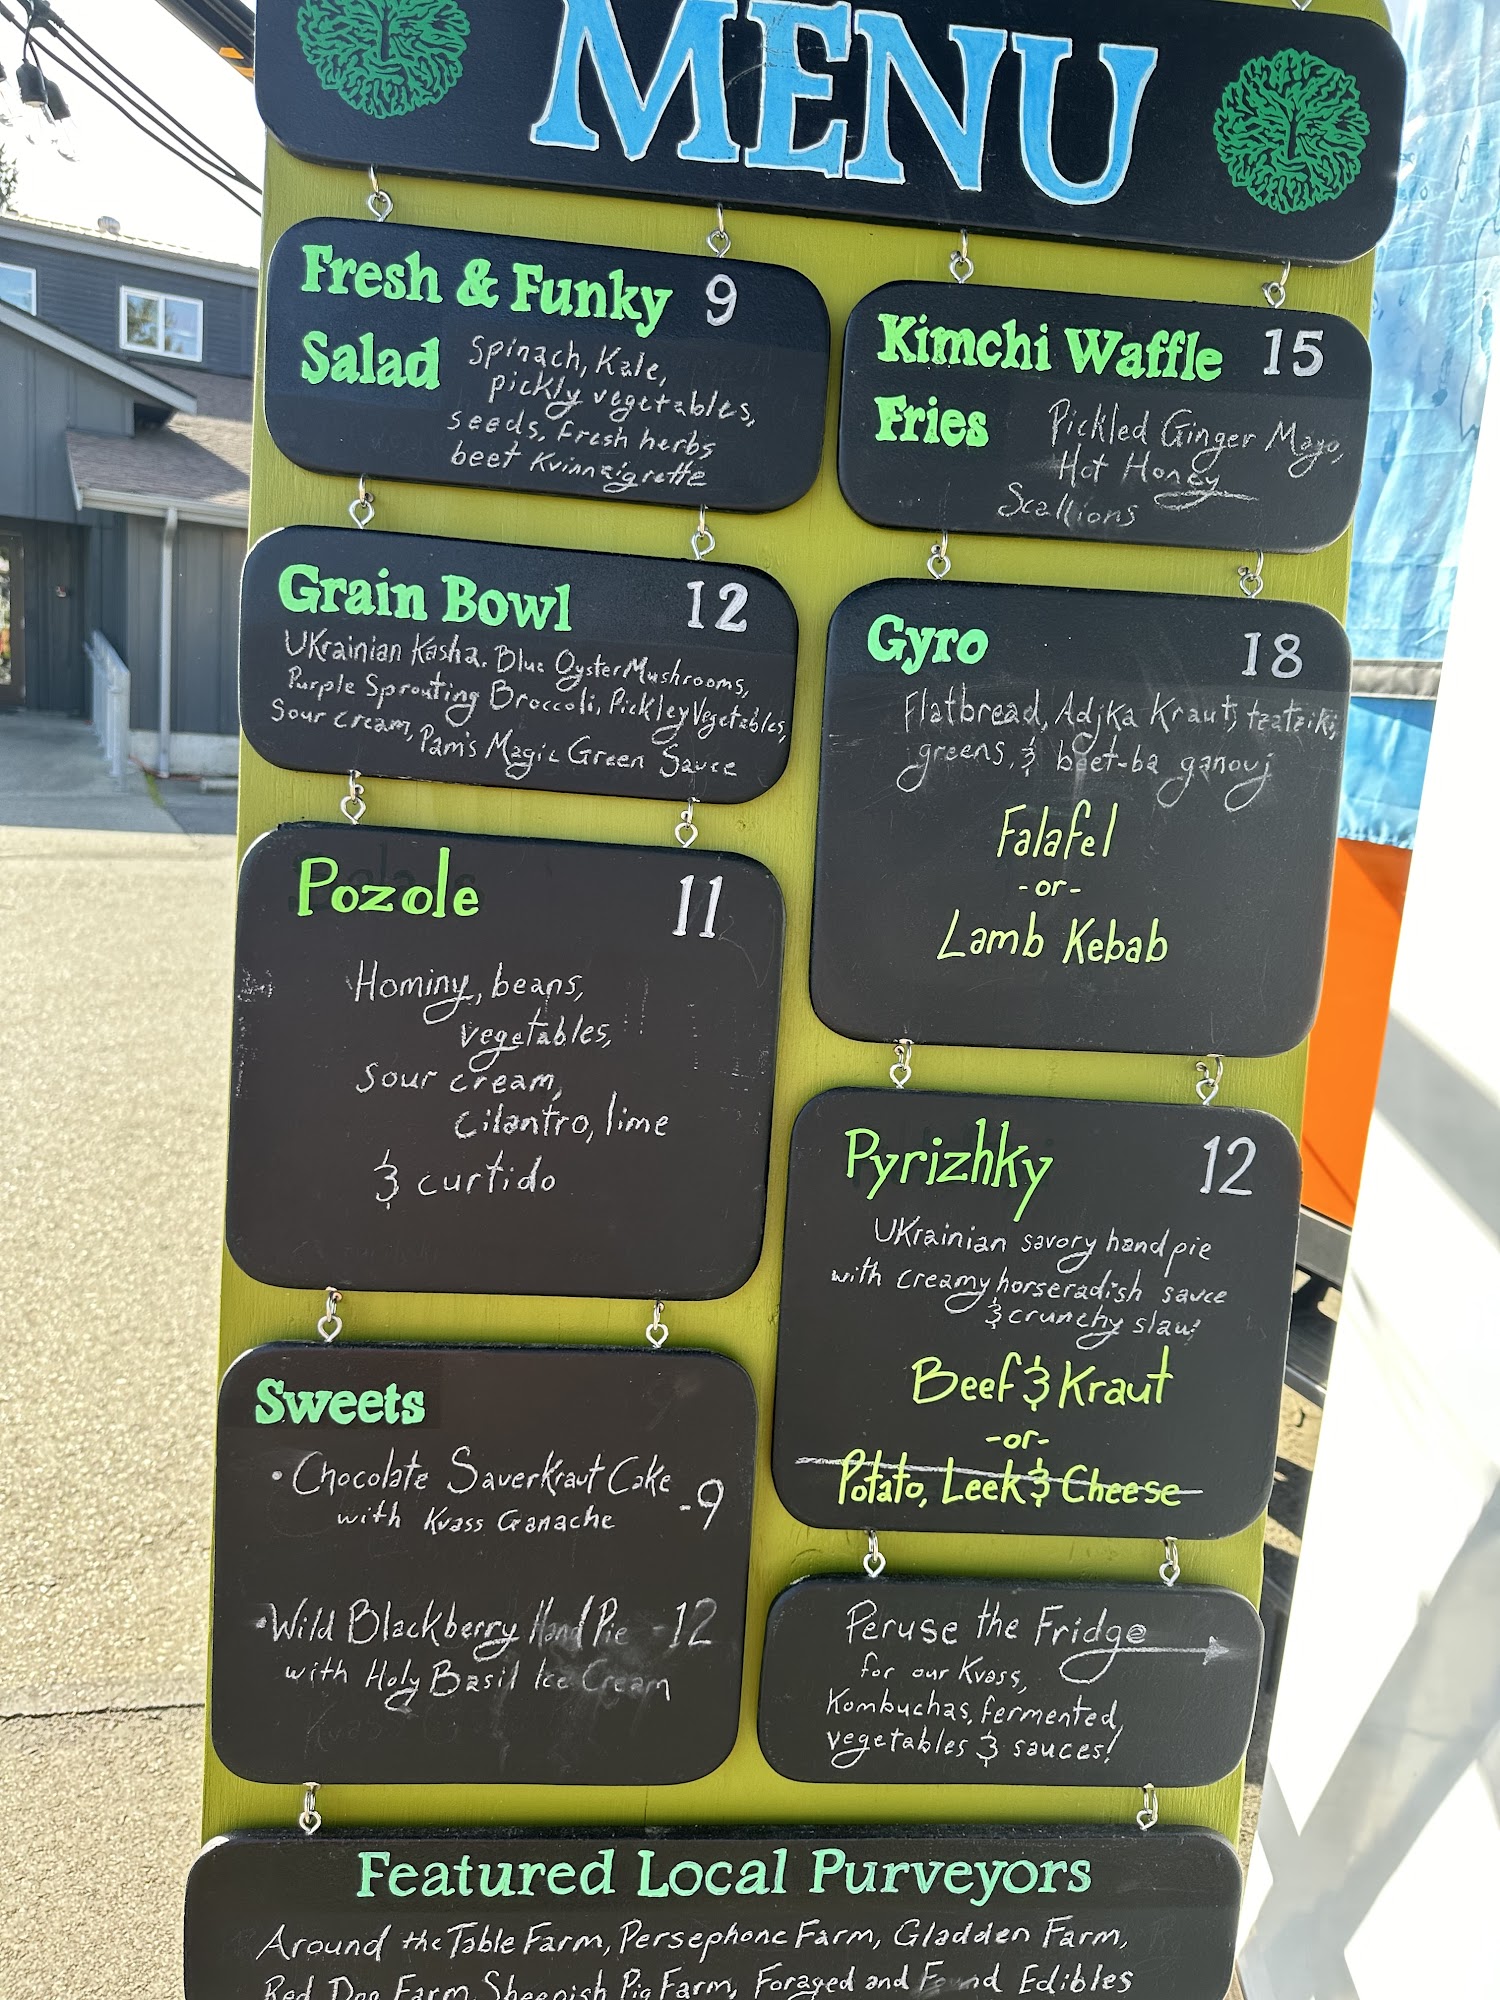 MENU
Fresh & Funky 9
Salad Spinach, Kale,
pickly vegetables,
seeds, fresh herbs
beet Kvinnaigrette
Kimchi Waffle 15
Fries Pickled Ginger Mayo,
Hot Honey
Scallions
Grain Bowl 12
Ukrainian Kasha, Blue Oyster Mushrooms,
Purple Sprouting Broccoli, Pickley Vegetables,
Sour cream, Pam's Magic Green Sauce
Gyro 18
Flatbread, Adjika Kraut, tzatziki,
greens, & beet-ba ganouj
Falafel
-or-
Lamb Kebab
Pozole 11
Hominy, beans,
vegetables,
sour cream,
cilantro, lime
& curtido
Pyrizhky 12
Ukrainian savory hand pie
with creamy horseradish sauce
& crunchy slaw
Beef & Kraut
-or-
Potato, Leek & Cheese
Sweets
• Chocolate Sauerkraut Cake -9
with Kvass Ganache
• Wild Blackberry Hand Pie -12
with Holy Basil Ice Cream
Peruse the Fridge
for our Kvass,
Kombuchas, fermented,
vegetables & sauces!
Featured Local Purveyors
Around the Table Farm, Persephone Farm, Gladden Farm,
Red Dog Farm, Sheepish Pig Farm, Foraged and Found Edibles